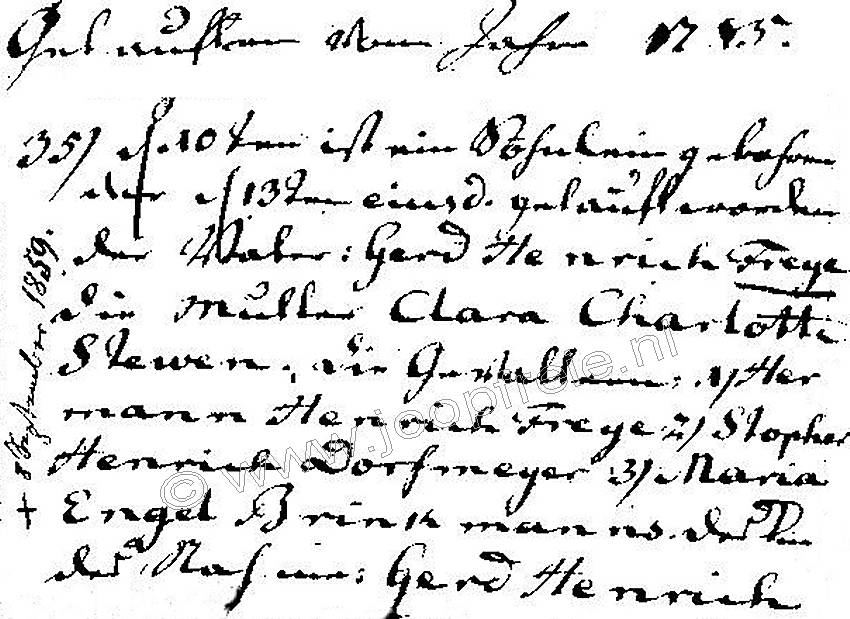 Getauften vom Jahre 17
35) d 10ten ist ein Söhnlein gebohren
der d 13ten eiusd. getauft worden
der Vater: Gerd Henrich Freye
die Mutter Clara Charlotte
Stewen. die Gevattern: 1) Her
mann Henrich Freye 2) Stopher
Henrich Dorfmeyer 3) Maria
Engel Brinkmanns. des Kin
des Nahme: Gerd Henrich
+ 8 September 1859.
© www.joopindie.nl